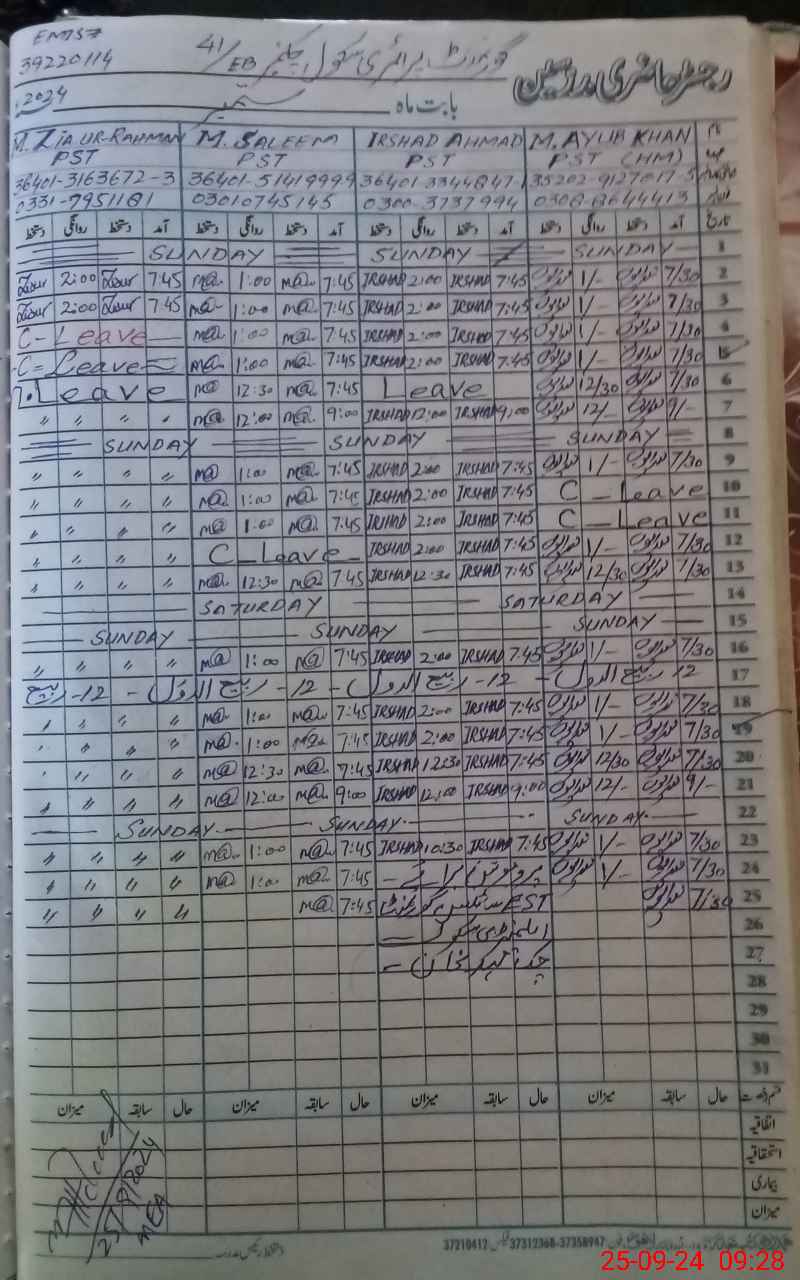 EMIS#
39220114
گورنمنٹ پرائمری سکول چک نمبر 41/EB
رجسٹر حاضری مدرسین
2024
بابت ماہ ستمبر
M. ZIA UR-RAHMAN M. SALEEM IRSHAD AHMAD M. AYUB KHAN نام
PST PST PST PST (HM)
36401-3163672-3 36401-5141999 36401-3344847-1 35202-9127017-5
0331-7951181 03010745145 0300-3737994
دستخط روانگی دستخط آمد دستخط روانگی دستخط آمد دستخط روانگی دستخط آمد دستخط روانگی دستخط آمد تاریخ
SUNDAY SUNDAY SUNDAY 1
2:00 7:45 m@ 1:00 m@ 7:45 IRSHAD 2:00 IRSHAD 7:45 1/- 7/30 2
2:00 7:45 m@ 1:00 m@ 7:45 IRSHAD 2:00 IRSHAD 7:45 1/- 7/30 3
C-Leave m@ 1:00 m@ 7:45 IRSHAD 2:00 IRSHAD 7:45 1/- 7/30 4
C-Leave m@ 1:00 m@ 7:45 IRSHAD 2:00 IRSHAD 7:45 1/- 7/30 5
Leave m@ 12:30 m@ 7:45 Leave 12/30 7/30 6
" " " " m@ 12:00 m@ 9:00 IRSHAD 12:00 IRSHAD 9:00 12/- 9/- 7
SUNDAY SUNDAY SUNDAY 8
" " " " m@ 1:00 m@ 7:45 IRSHAD 2:00 IRSHAD 7:45 1/- 7/30 9
" " " " m@ 1:00 m@ 7:45 IRSHAD 2:00 IRSHAD 7:45 C-Leave 10
" " " " m@ 1:00 m@ 7:45 IRSHAD 2:00 IRSHAD 7:45 C-Leave 11
" " " " C-Leave IRSHAD 2:00 IRSHAD 7:45 1/- 7/30 12
" " " " m@ 12:30 m@ 7:45 IRSHAD 12:30 IRSHAD 7:45 12/30 7/30 13
SATURDAY SATURDAY 14
15
SUNDAY SUNDAY SUNDAY
" " " " m@ 1:00 m@ 7:45 IRSHAD 2:00 IRSHAD 7:45 1/- 7/30 16
12- ربیع الاول - 12- ربیع الاول - 12- ربیع الاول - 12- ربیع 17
" " " " m@ 1:00 m@ 7:45 IRSHAD 2:00 IRSHAD 7:45 1/- 7/30 18
" " " " m@ 1:00 m@ 7:45 IRSHAD 2:00 IRSHAD 7:45 1/- 7/30 19
" " " " m@ 12:30 m@ 7:45 IRSHAD 12:30 IRSHAD 7:45 12/30 7/30 20
" " " " m@ 12:00 m@ 9:00 IRSHAD 12:00 IRSHAD 9:00 12/- 9/- 21
SUNDAY SUNDAY SUNDAY 22
" " " " m@ 1:00 m@ 7:45 IRSHAD 10:30 IRSHAD 7:45 1/- 7/30 23
" " " " m@ 1:00 m@ 7:45 پروموشن برائے 1/- 7/30 24
" " " " m@ 7:45 EST سائنس گورنمنٹ 7/30 25
26
27
28
29
30
31
میزان سابقہ حال میزان سابقہ حال میزان سابقہ حال میزان سابقہ حال
اتفاقیہ
استحقاقیہ
بیماری
میزان
25/9/2024
MEA
37210412 37312368-37358947
25-09-24 09:28